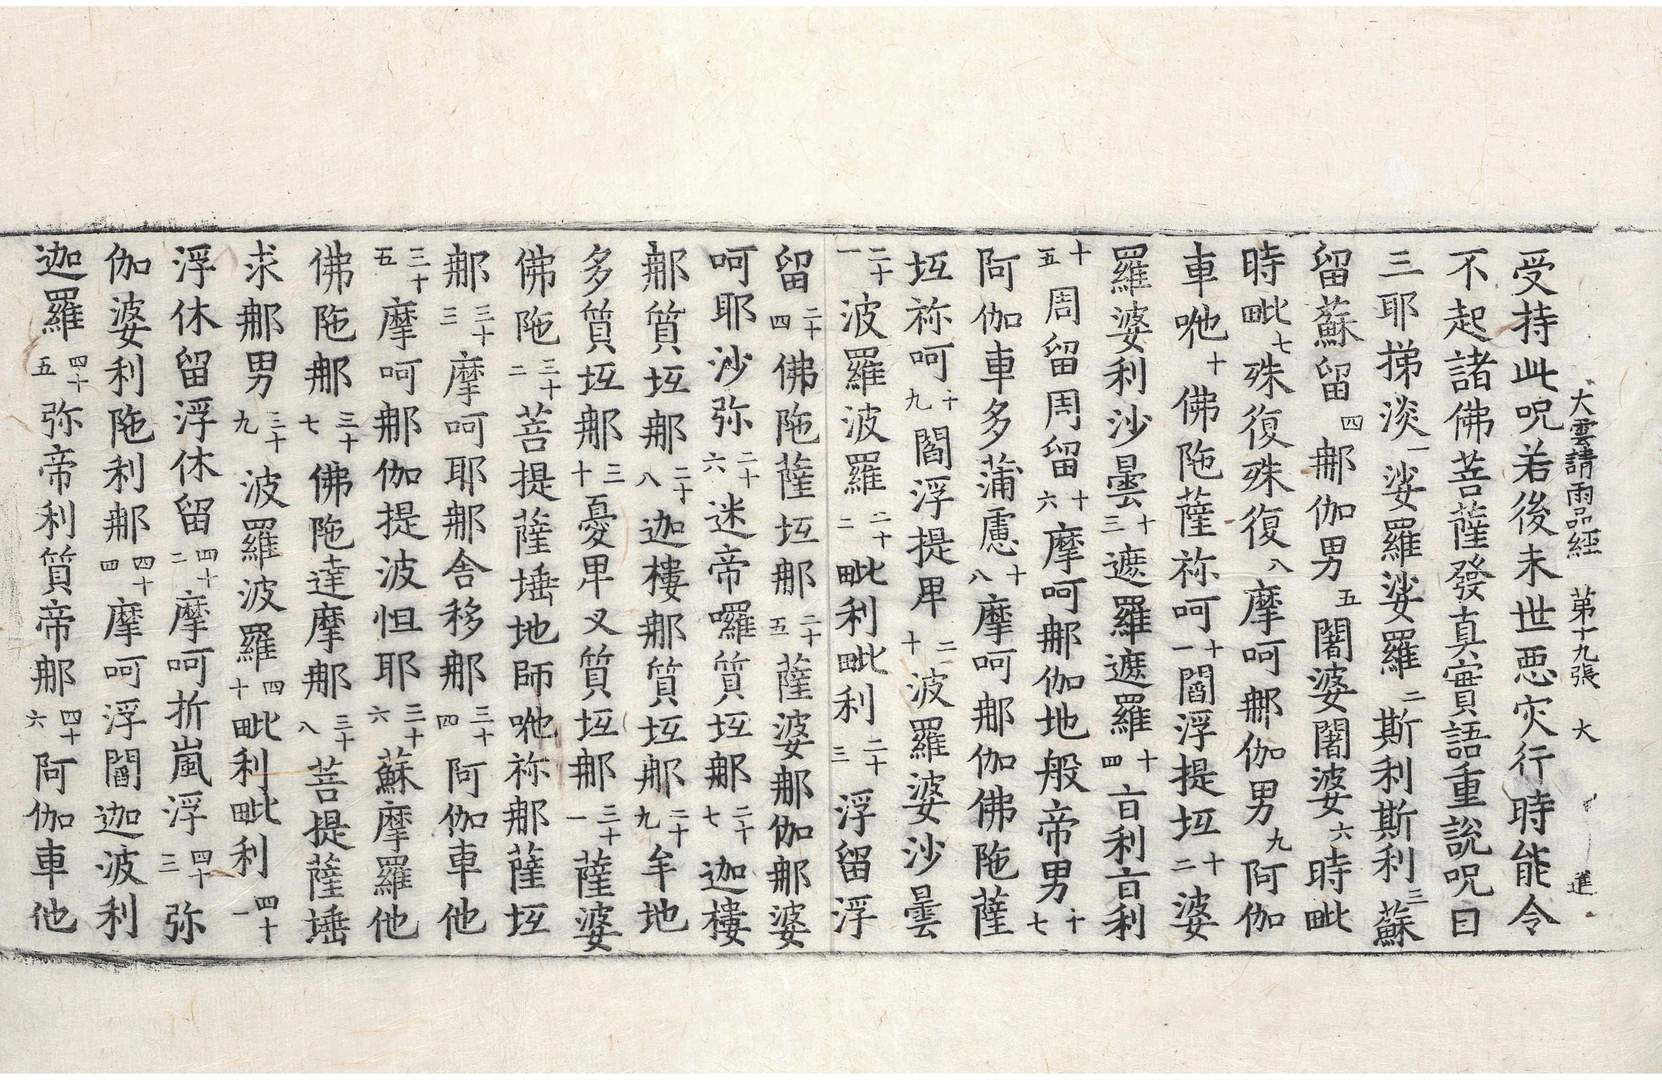 大雲請雨品經 第十九張 大 進
受持此呪若後未世惡灾行時能令
不起諸佛菩薩發真實語重說呪曰
三耶揥淡一娑羅娑羅二斯利斯利三蘇
留蘇留四那伽男五闍婆闍婆六時毗
時毗七殊復殊復八摩呵那伽男九阿伽
車呬十佛陁薩祢呵十一閻浮提坘十二婆
羅婆利沙曇十三遮羅遮羅十四盲利盲利
十五周留周留十六摩呵那伽地般帝男十七
阿伽車多蒲慮十八摩呵那伽佛陁薩
坘祢呵十九閻浮提卑二十波羅婆沙曇
二十一波羅波羅二十二毗利毗利二十三浮留浮
留二十四佛陁薩坘那二十五薩婆那伽那婆
呵耶沙弥二十六迷帝囉質坘那二十七迦樓
那質坘那二十八迦樓那質坘那二十九牟地
多質坘那三十憂卑叉質坘那三十一薩婆
佛陁三十二菩提薩埵地師呬祢那薩坘
那三十三摩呵耶那舍移那三十四阿伽車他
三十五摩呵那伽提波怛耶三十六蘇摩羅他
佛陁那三十七佛陁達摩那三十八菩提薩埵
求那男三十九波羅波羅四十毗利毗利四十一
浮休留浮休留四十二摩呵折嵐浮四十三弥
伽婆利陁利那四十四摩呵浮閻迦波利
迦羅四十五弥帝利質帝那四十六阿伽車他